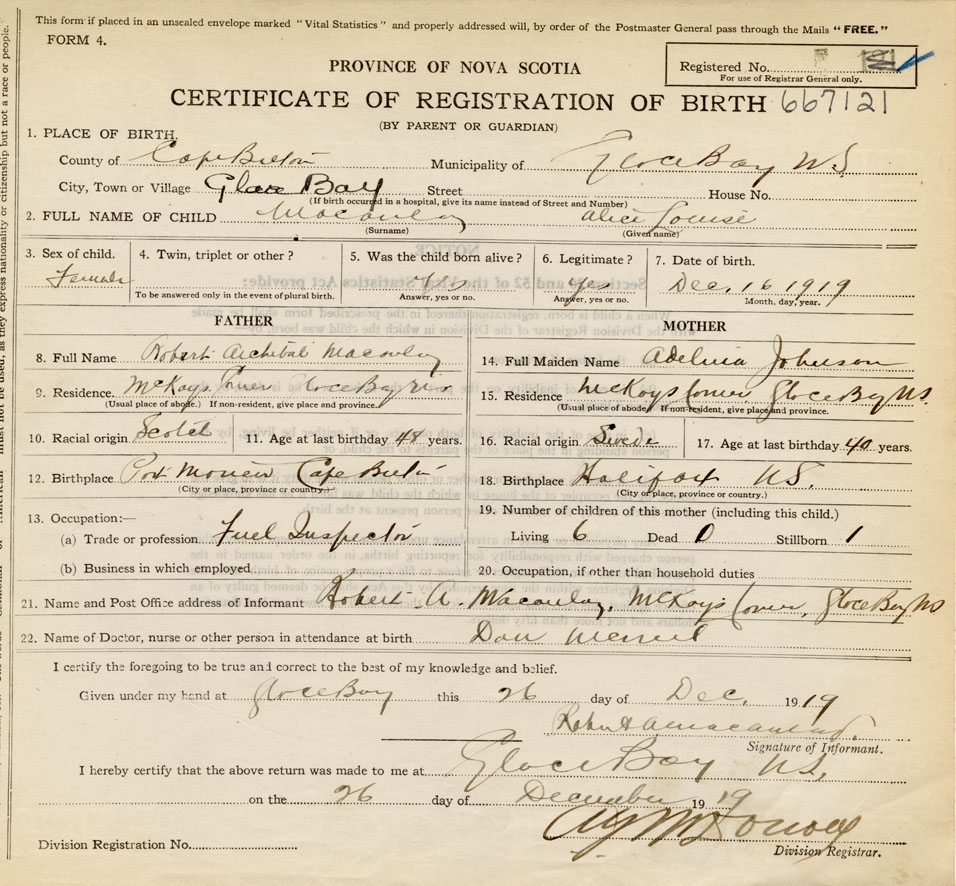 This form if placed in an unsealed envelope marked "Vital Statistics" and properly addressed will, by order of the Postmaster General pass through the Mails "FREE."
FORM 4.
Registered No.
For use of Registrar General only.
PROVINCE OF NOVA SCOTIA
CERTIFICATE OF REGISTRATION OF BIRTH 667121
(BY PARENT OR GUARDIAN)
1. PLACE OF BIRTH.
County of Cape Breton Municipality of Glace Bay N.S.
City, Town or Village Glace Bay Street House No.
(If birth occurred in a hospital, give its name instead of Street and Number)
2. FULL NAME OF CHILD Macaulay Alice Louise
(Surname) (Given name)
3. Sex of child. 4. Twin, triplet or other? 5. Was the child born alive? 6. Legitimate? 7. Date of birth.
Female Yes Yes Dec, 16 1919
To be answered only in the event of plural birth. Answer, yes or no. Answer, yes or no. Month, day, year.
FATHER MOTHER
8. Full Name Robert Archibal Macaulay 14. Full Maiden Name Johnson
9. Residence. McKays Corner Glace Bay NS 15. Residence McKays Corner Glace Bay NS.
(Usual place of abode.) If non-resident, give place and province. (Usual place of abode.) If non-resident, give place and province.
10. Racial origin Scotch 11. Age at last birthday 48 years. 16. Racial origin Swede 17. Age at last birthday 40 years.
12. Birthplace Port Morien Cape Breton 18. Birthplace Halifax N.S.
(City or place, province or country.) (City or place, province or country.)
13. Occupation:— 19. Number of children of this mother (including this child.)
(a) Trade or profession Fuel Inspector Living 6 Dead 0 Stillborn 1
(b) Business in which employed 20. Occupation, if other than household duties
21. Name and Post Office address of Informant Robert A. Macaulay, McKays Corner, Glace Bay NS
22. Name of Doctor, nurse or other person in attendance at birth Dan
I certify the foregoing to be true and correct to the best of my knowledge and belief.
Given under my hand at Glace Bay this 26 day of Dec, 1919
Signature of Informant.
I hereby certify that the above return was made to me at Glace Bay N.S.
on the 26 day of December 1919
Division Registration No. Division Registrar.